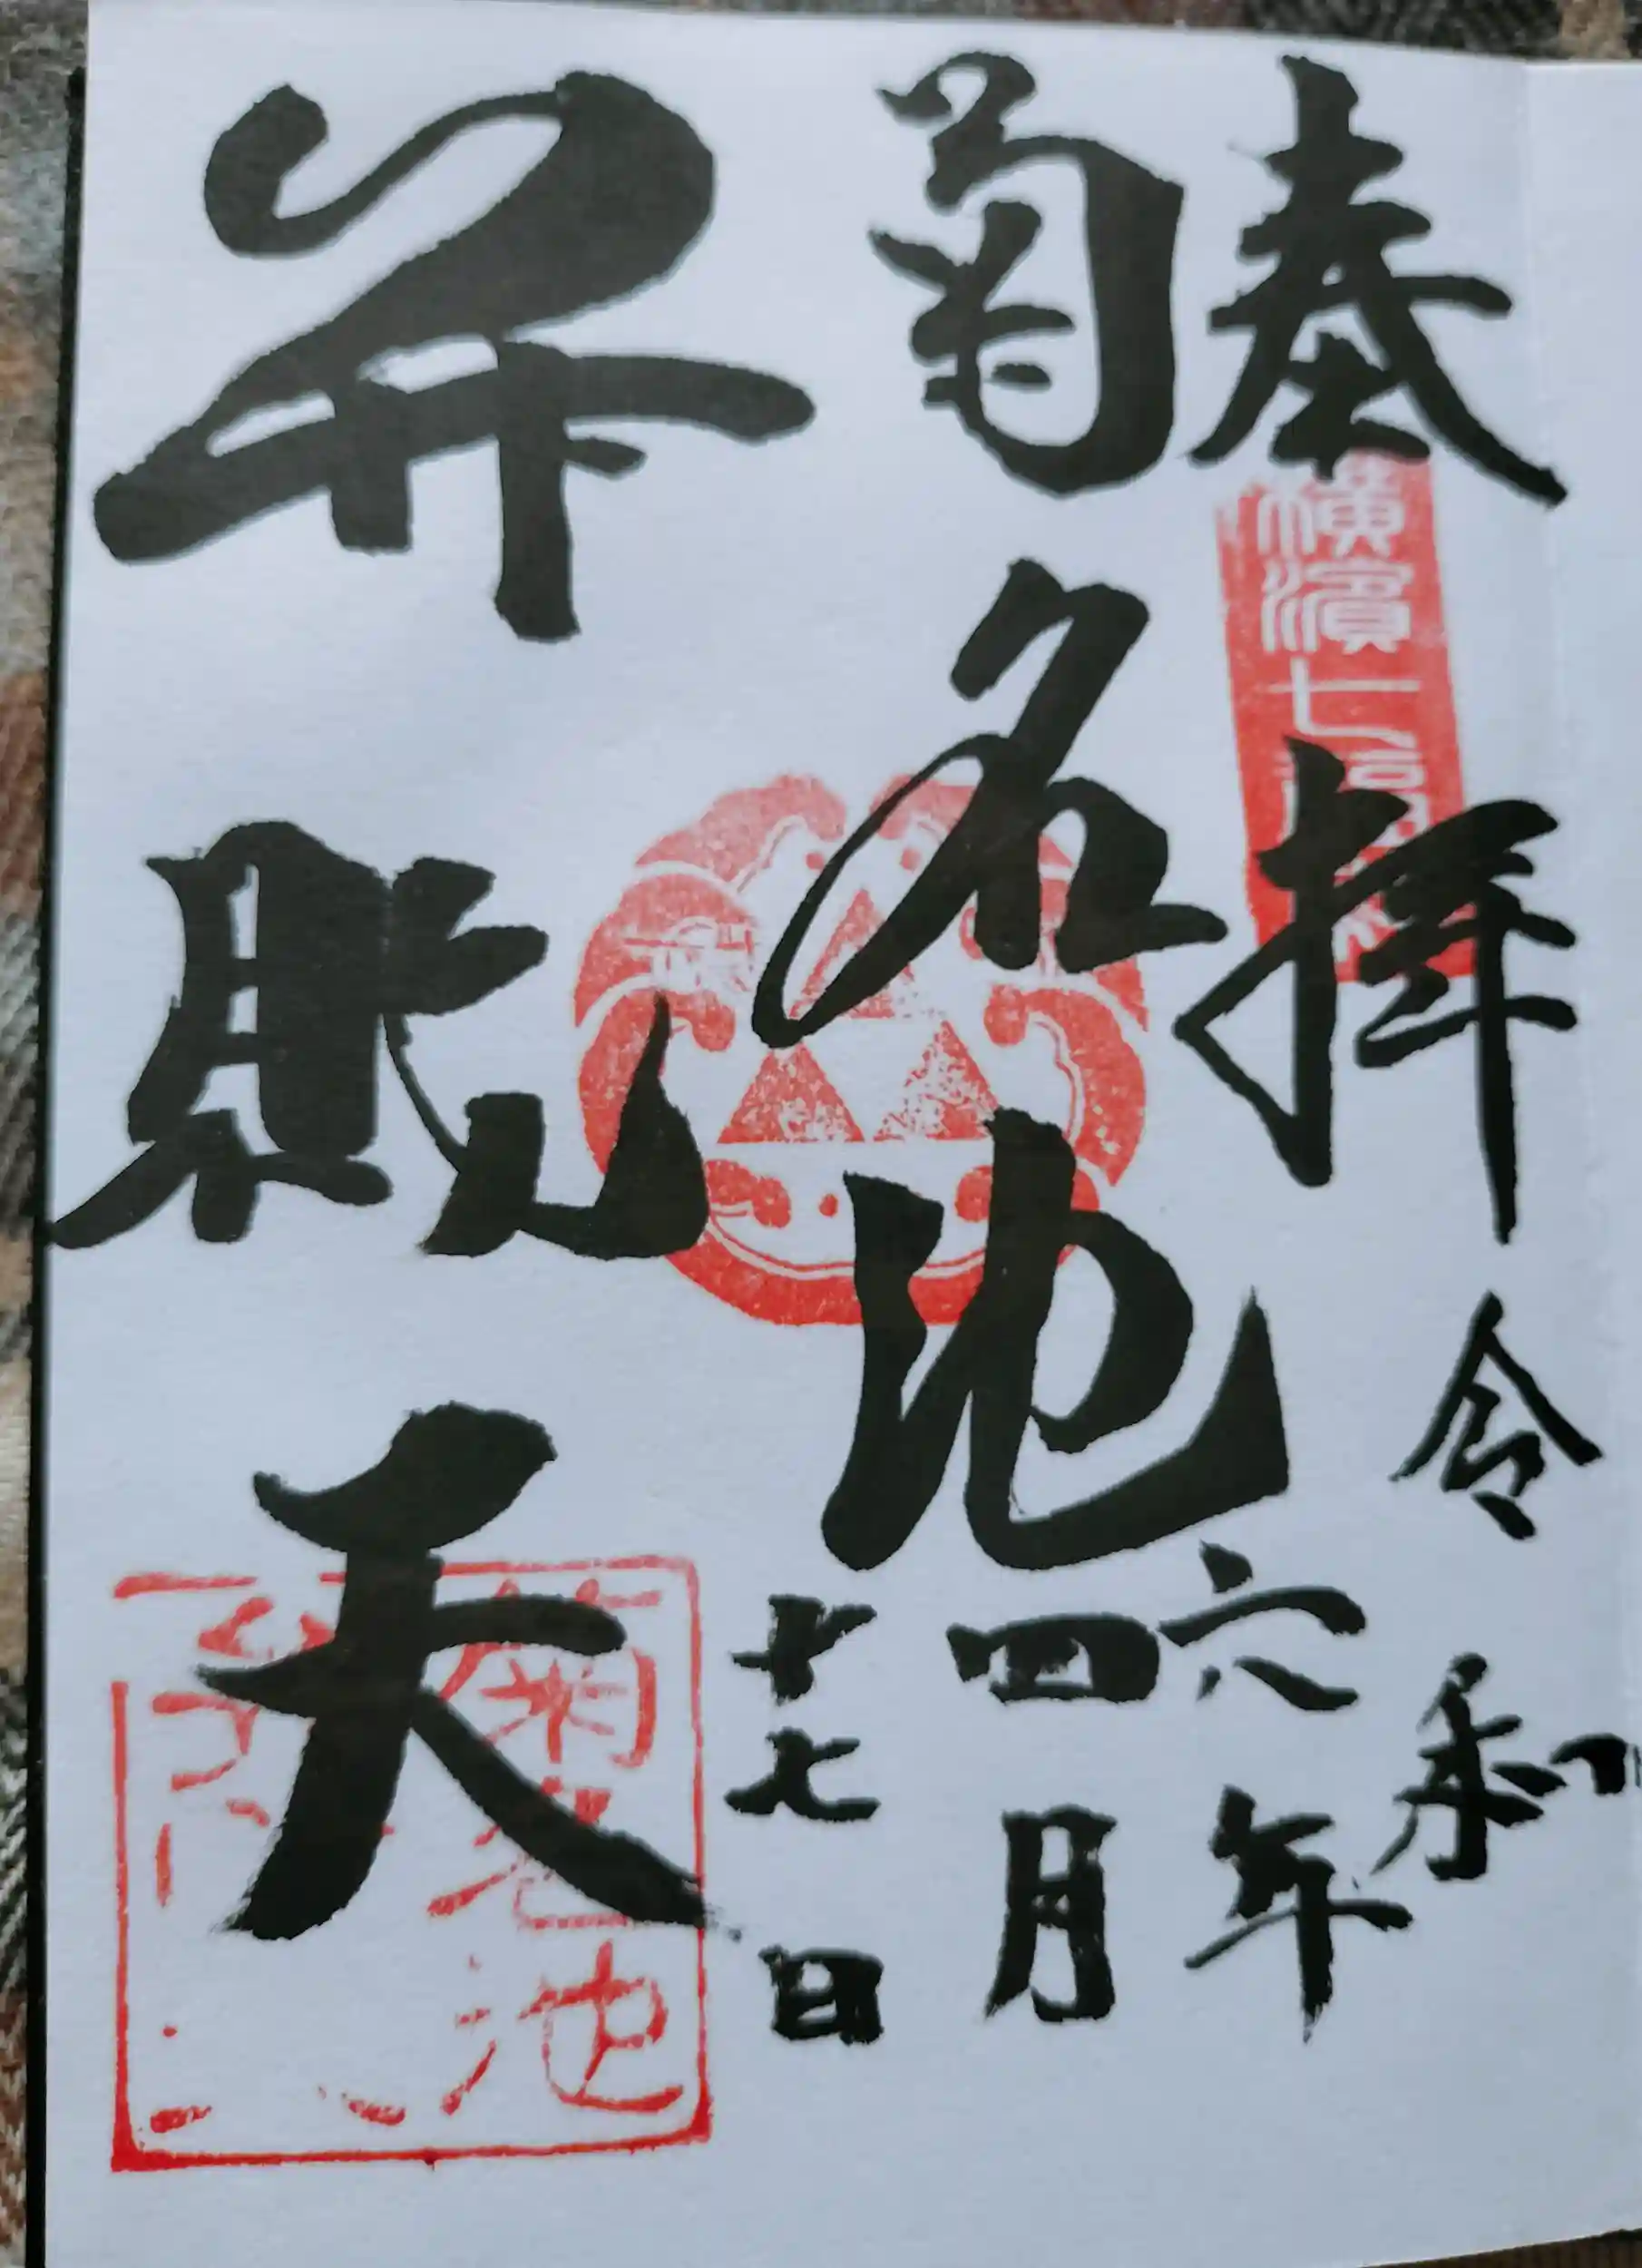 奉拝
横濱七福
令和
六年
菊名池
四月
十七日
弁財天
菊名池